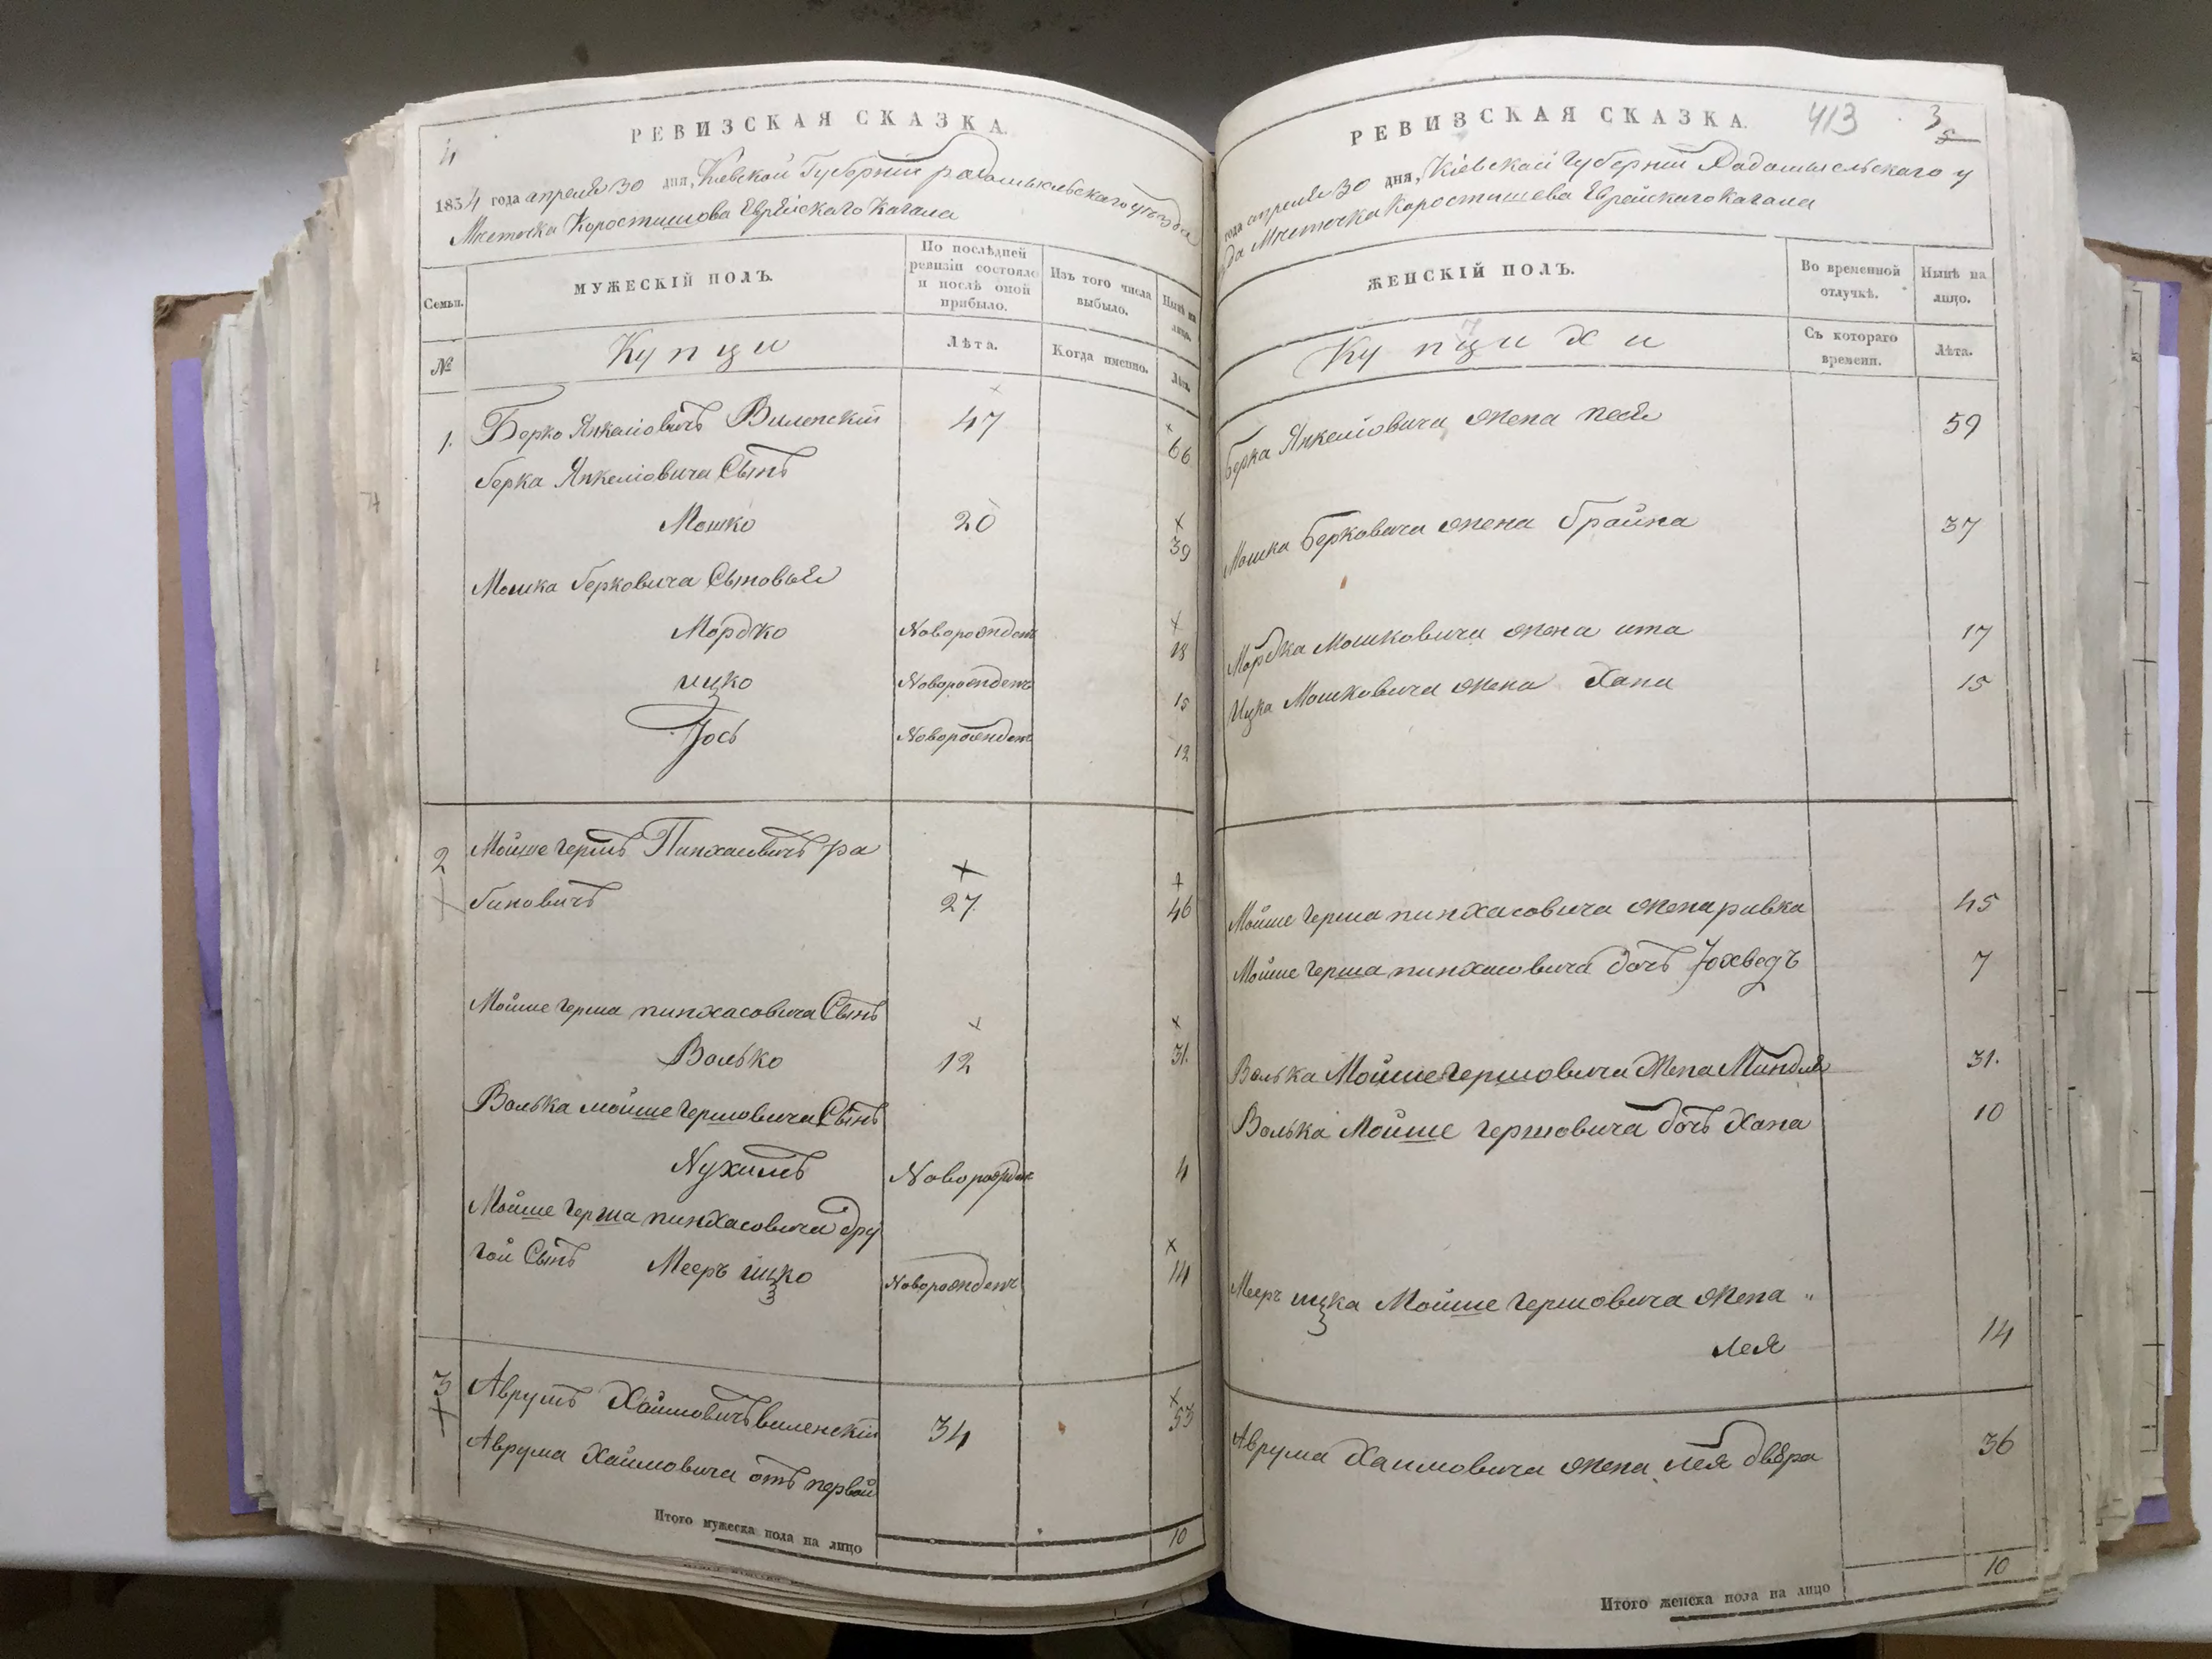 4
РЕВИЗСКАЯ СКАЗКА.
1854 года апреля 30 дня, Кіевской Губерніи радомысльскаго уѣзда
Мѣстечка Коростишова Еврейскаго Кагала
Семьи.
МУЖЕСКІЙ ПОЛЪ.
По послѣдней ревизіи состояло и послѣ оной прибыло.
Изъ того числа выбыло.
Нынѣ на лицо.
№
Купци
Лѣта.
Когда именно.
Лѣта.
1. Берко Янкеліовичъ Виленскій 47 66
берка Янкеліовича Сынъ
Мошко 20 39
Мошка берковича Сыновья
Мордко Новорожденъ 18
ицко Новорожденъ 15
Іось Новорожденъ 12
2 Мойше гершъ Пинхасовичъ ра
биновичъ 27 46
Мойше герша пинхасовича Сынъ
Волько 12 31.
Волька мойше гершовича Сынъ
Нухимъ Новорожден 4
Мойше герша пинхасовича дру
гой Сынъ Мееръ ицко Новорожденъ 14
3 Аврумъ Хаимовичъ виленскій 34 53
Аврума Хаимовича отъ первой
Итого мужеска пола на лицо 10
РЕВИЗСКАЯ СКАЗКА.
413
3
5
года апреля 30 дня, Кіевской Губерніи Радомысльскаго у
ѣзда Мѣстечка Коростишева Еврейскаго Кагала
ЖЕНСКІЙ ПОЛЪ.
Во временной отлучкѣ.
Нынѣ на лицо.
Купцихи
Съ котораго времени.
Лѣта.
берка Янкеліовича жена песя 59
Мошка Берковича жена брайна 37
Мордка Мошковича жена ита 17
Ицка Мошковича жена Хана 15
Мойше герша пинхасовича жена ривка 45
Мойше герша пинхасовича дочь Іохведъ 7
Волька Мойше гершовича Жена Миндля 31.
Волька Мойше гершовича дочь Хана 10
Меера ицка Мойше гершовича жена "
лея 14
Аврума Хаимовича жена лея двѣра 36
Итого женска пола на лицо 10